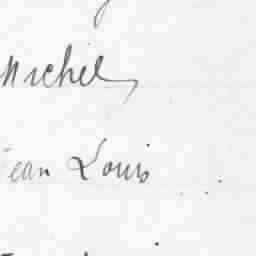 Michel
Jean Louis